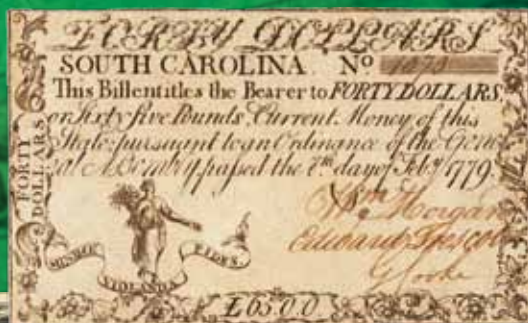 FORTY DOLLARS
SOUTH CAROLINA. No
This Bill entitles the Bearer to FORTY DOLLARS,
or Sixty five Pounds, Current Money of this
State, pursuant to an Ordinance of the Gene
ral Assembly passed the day of Feby. 1779.
FORTY
DOLLARS
Wm. Morgan
Edward
G Cooke
FIDES.
VIOLANDA
£65.0.0